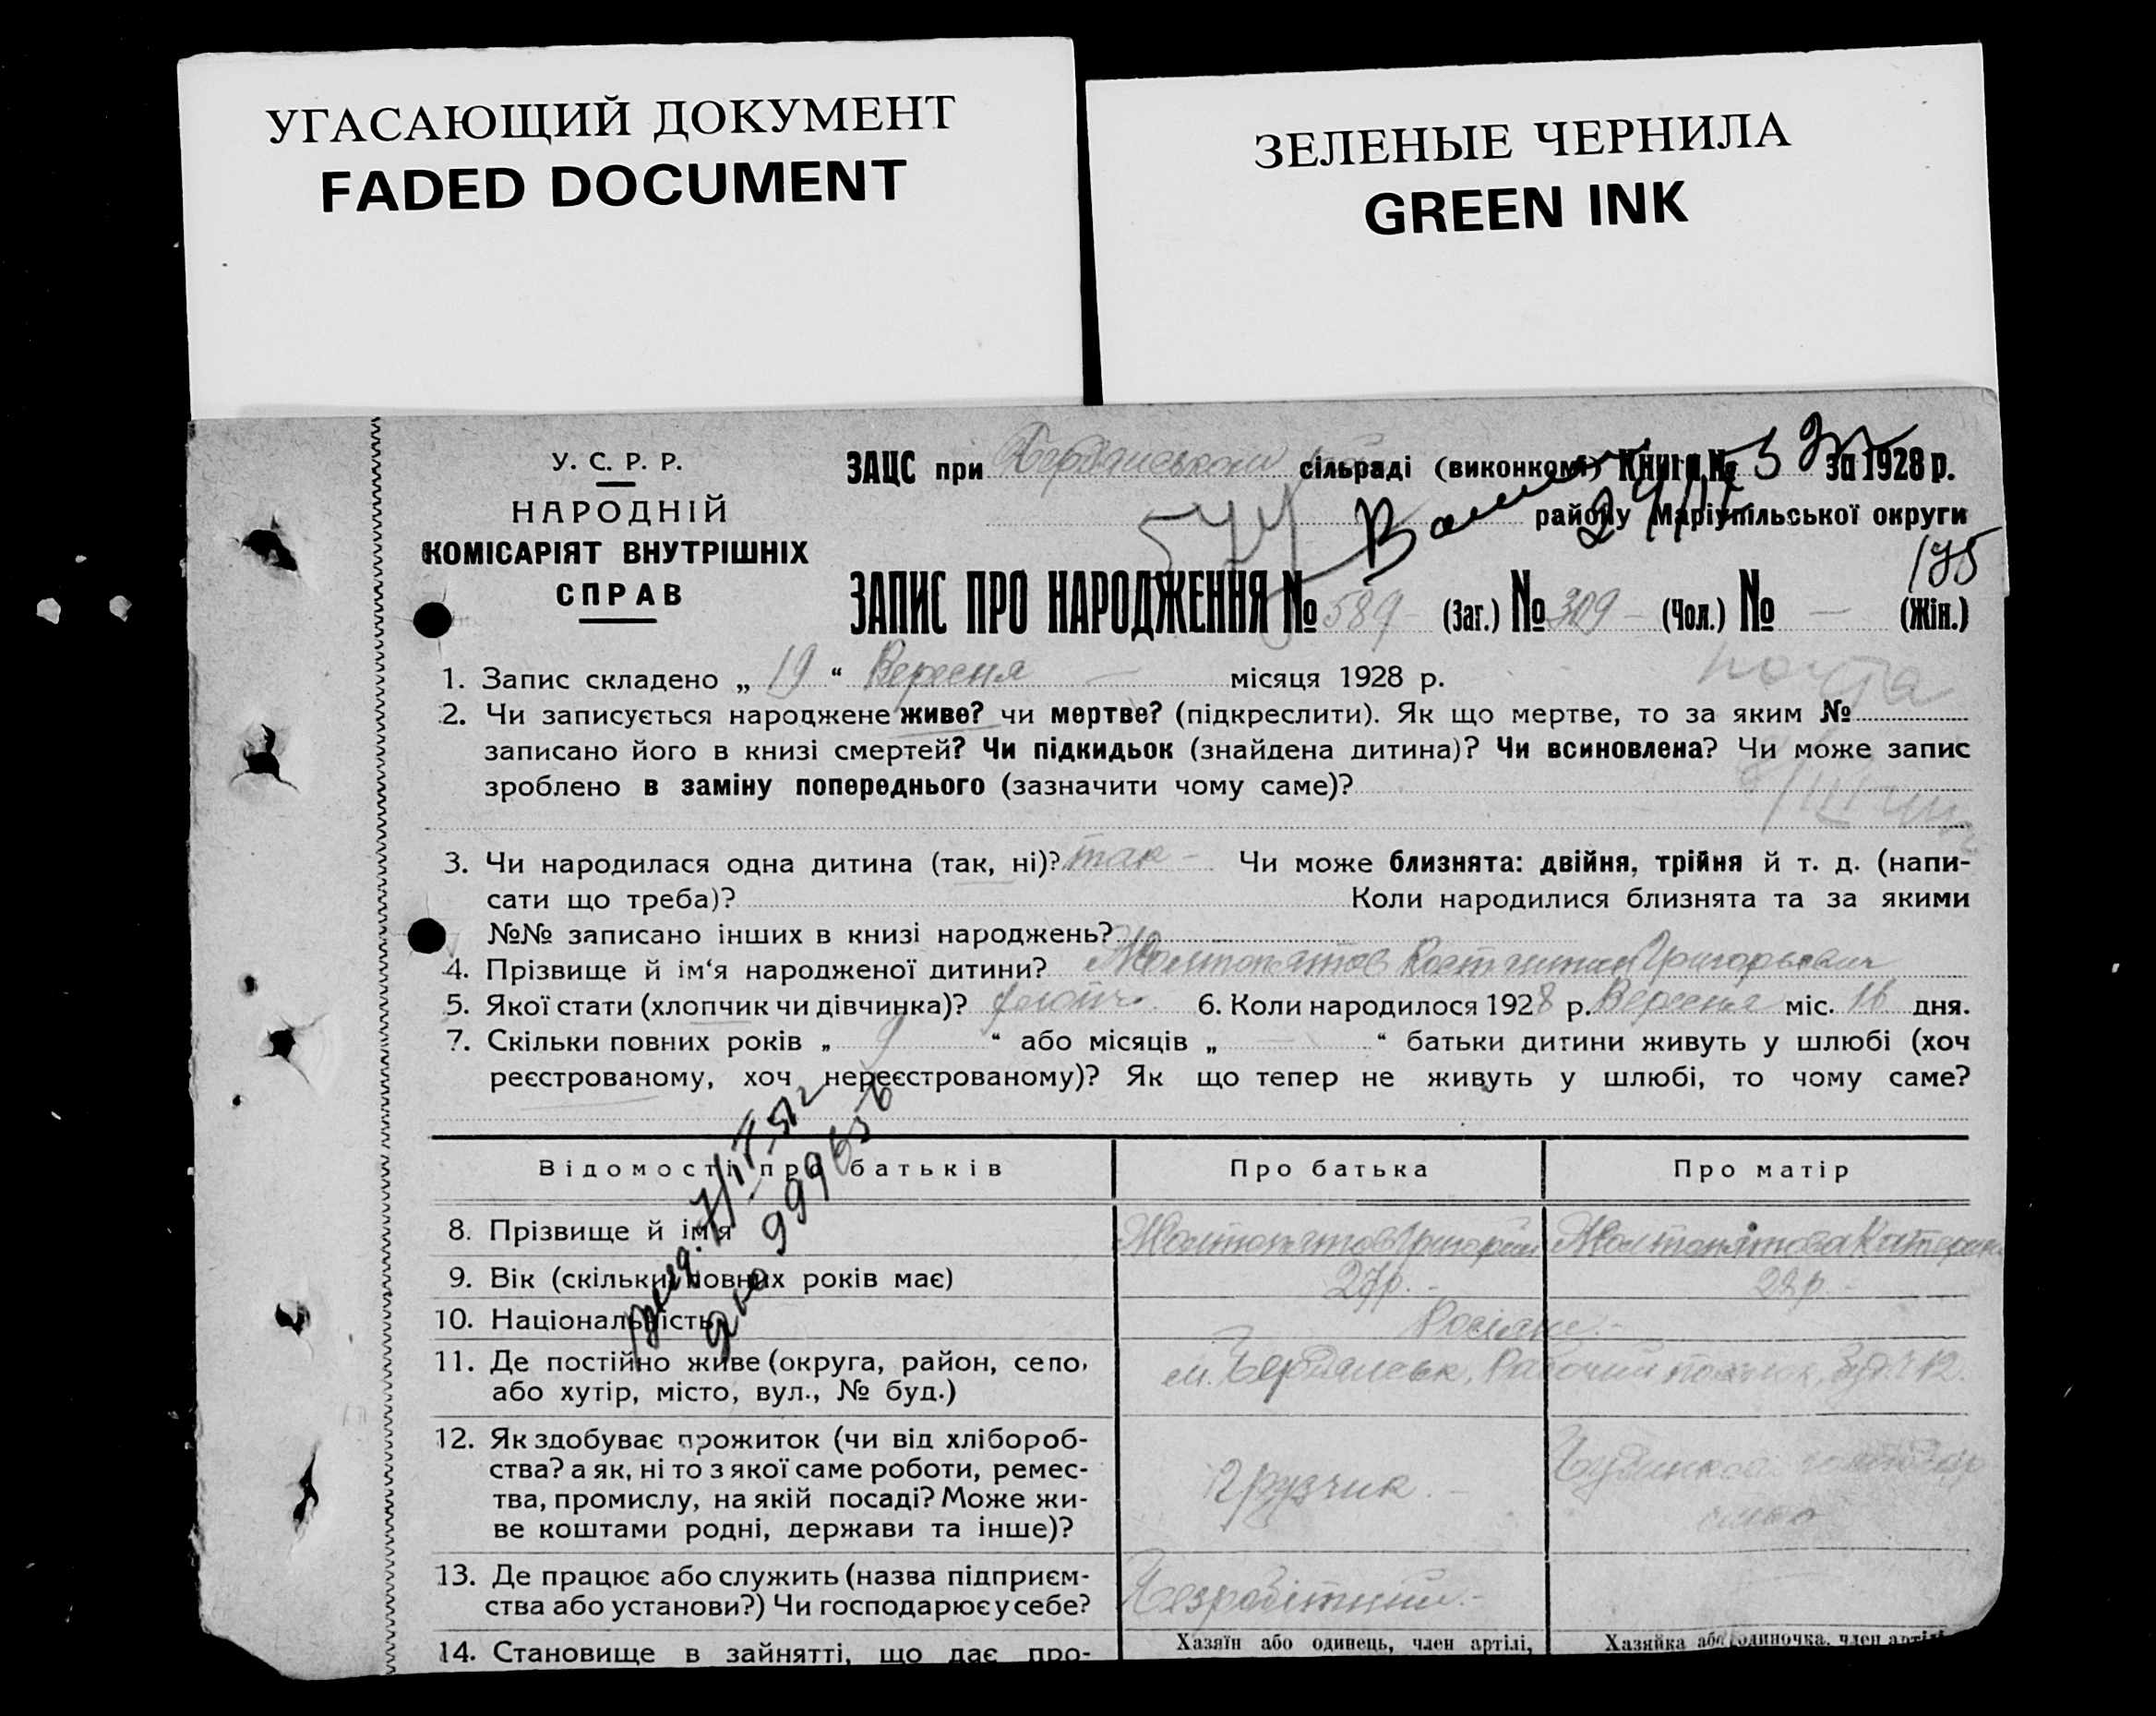 УГАСАЮЩИЙ ДОКУМЕНТ
FADED DOCUMENT
ЗЕЛЕНЫЕ ЧЕРНИЛА
GREEN INK
У. С. Р. Р.
НАРОДНІЙ
КОМІСАРІЯТ ВНУТРІШНІХ
СПРАВ
ЗАЦС при Бердянському сільраді (виконкомі) Книга № 3 за 1928 р.
району Маріупільської округи
175
ЗАПИС ПРО НАРОДЖЕННЯ № 589 (Заг.) № 309 (Чол.) № — (Жін.)
1. Запис складено „ 19 “ Вересня — місяця 1928 р.
2. Чи записується народжене живе? чи мертве? (підкреслити). Як що мертве, то за яким №
записано його в книзі смертей? Чи підкидьок (знайдена дитина)? Чи всиновлена? Чи може запис
зроблено в заміну попереднього (зазначити чому саме)?
3. Чи народилася одна дитина (так, ні)? так – Чи може близнята: двійня, трійня й т. д. (напи-
сати що треба)? Коли народилися близнята та за якими
№№ записано інших в книзі народжень?
4. Прізвище й ім‘я народженої дитини? Жолтопятов Костянтин Григорьович
5. Якої стати (хлопчик чи дівчинка)? хлопч. 6. Коли народилося 1928 р. Вересня міс. 16 дня.
7. Скільки повних років „ 9 “ або місяців „ — “ батьки дитини живуть у шлюбі (хоч
реєстрованому, хоч нереєстрованому)? Як що тепер не живуть у шлюбі, то чому саме?
Відомості про батьків Про батька Про матір
8. Прізвище й ім‘я Жолтопятов Григорій Жолтопятова Катерина
9. Вік (скільки повних років має) 27 р. – 28 р. –
10. Національність Росіяне. –
11. Де постійно живе (округа, район, село,
або хутір, місто, вул., № буд.) м. Бердянськ, Рабочий
12. Як здобуває прожиток (чи від хлібороб-
ства? а як, ні то з якої саме роботи, ремес-
тва, промислу, на якій посаді? Може жи-
ве коштами родні, держави та інше)?
грузчик. –
13. Де працює або служить (назва підприєм-
ства або установи?) Чи господарює у себе?
Безробітний. –
14. Становище в зайнятті, що дає про-
Хазяїн або одинець, член артілі,
Хазяйка або одиночка, член артілі